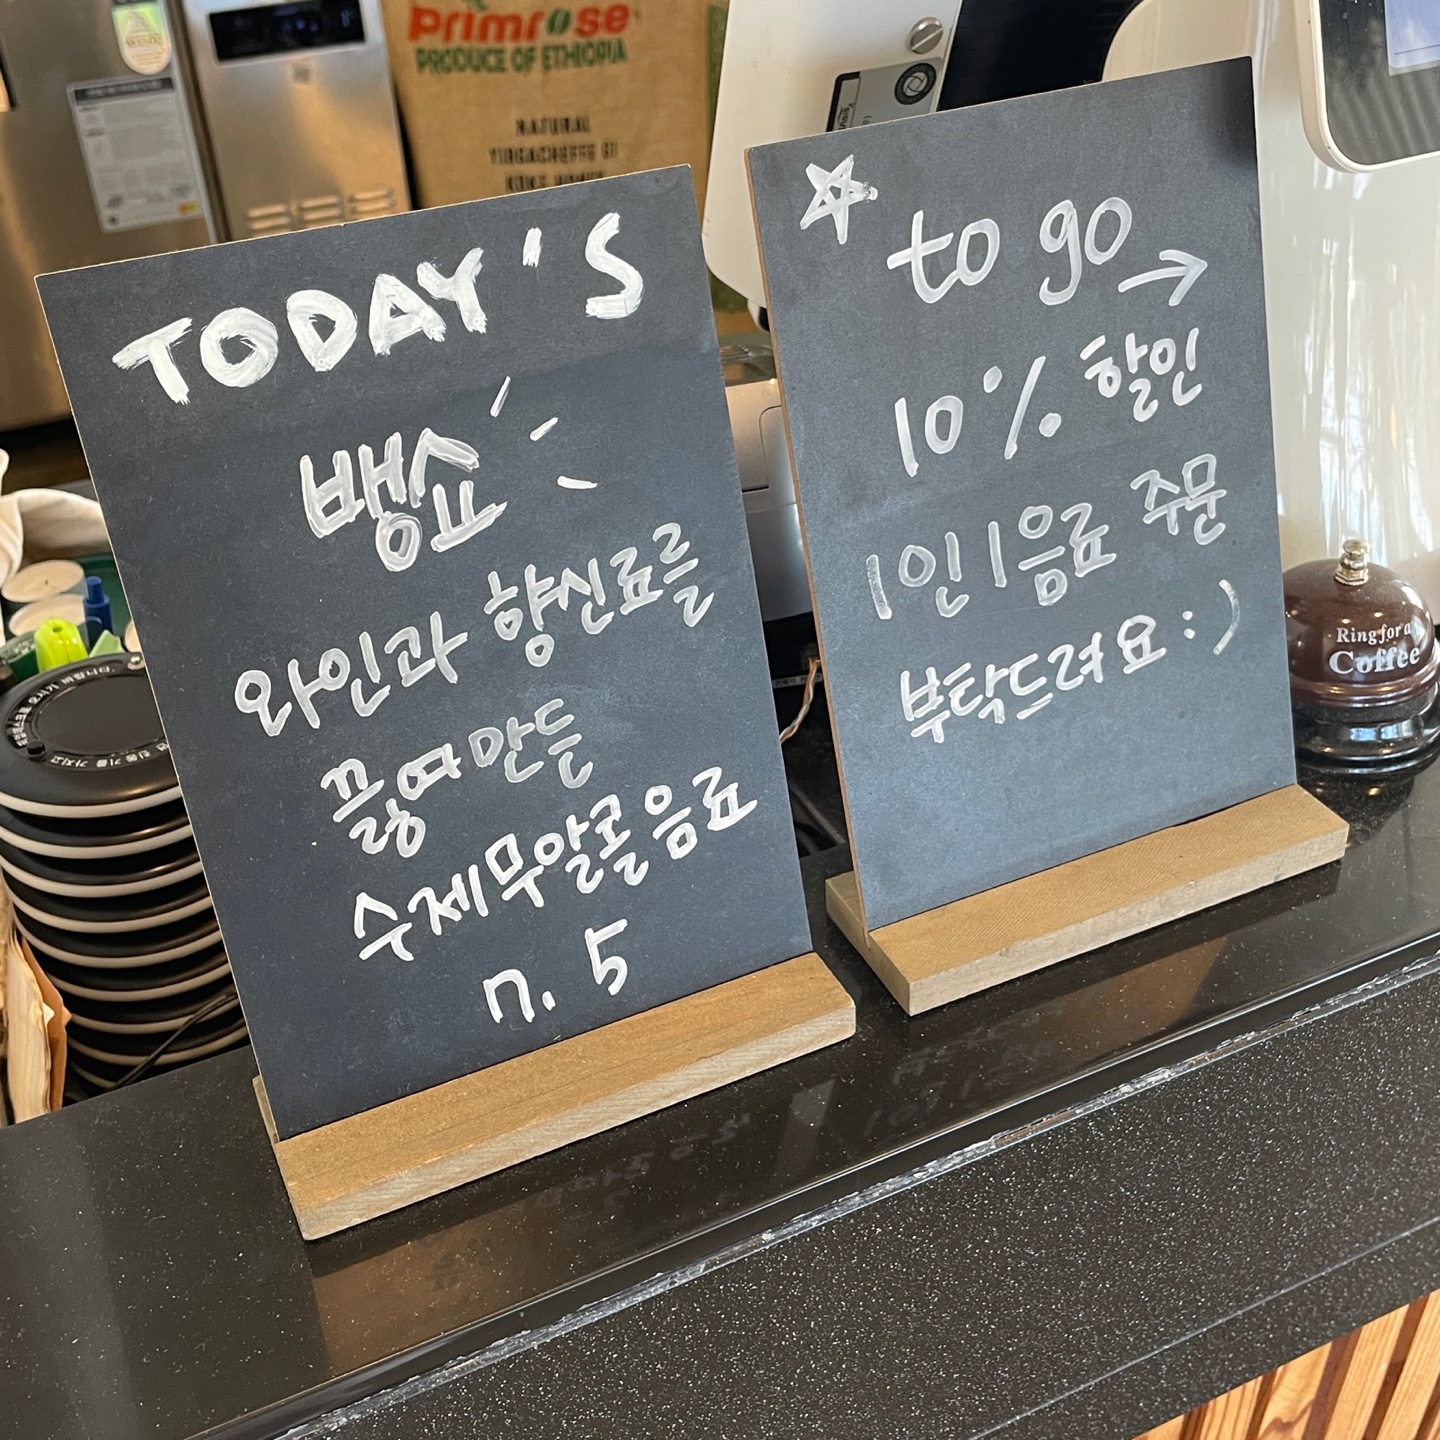 Primrose
PRODUCE OF ETHIOPIA
NATURAL
YIRGACHEFFE G1
TODAY'S
뱅쇼
와인과 향신료를
끓여만든
수제무알콜음료
7.5
to go
→
10% 할인
1인1음료 주문
부탁드려요:)
Ring for a
Coffee